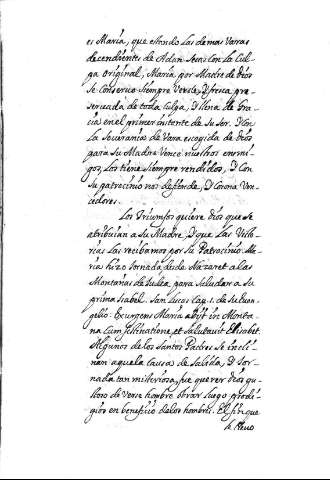 es María, que estando las demas Varas
decendientes de Adan secas con la Cul-
ga original, María, por Madre de Dios
se conservo siempre verde, y fresca, pre-
servada de toda culga, y llena de Gra-
cia en el primer instante de su ser. Y con
la soverania de Vara escogida de Dios
para su Madre Vence nuestros enemi-
gos, los tiene siempre rendidos, y con
su patrocinio nos defiende, y corona Ven-
cedores.
Los Triumfos quiere Dios que se
atribuian a su Madre, y que las Victo-
rias las recibamos por su Patrocinio. Ma-
ria hizo jornada desde Nazaret a las
Montañas de Judea, para saludar a su
prima Isabel. San Lucas Cap. 1. de su Evan-
gelio. Exurgens María abijt in Monta-
na cum festinatione, et salutavit Elisabet.
Algunos de los Santos Padres se incli-
nan aquela causa de salida, y Jor-
nada tan misteriosa, fue querer Dios gu-
stoso de verse hombre obrar luego prodi-
gios en beneficio de los hombres. El fin que
la llevo